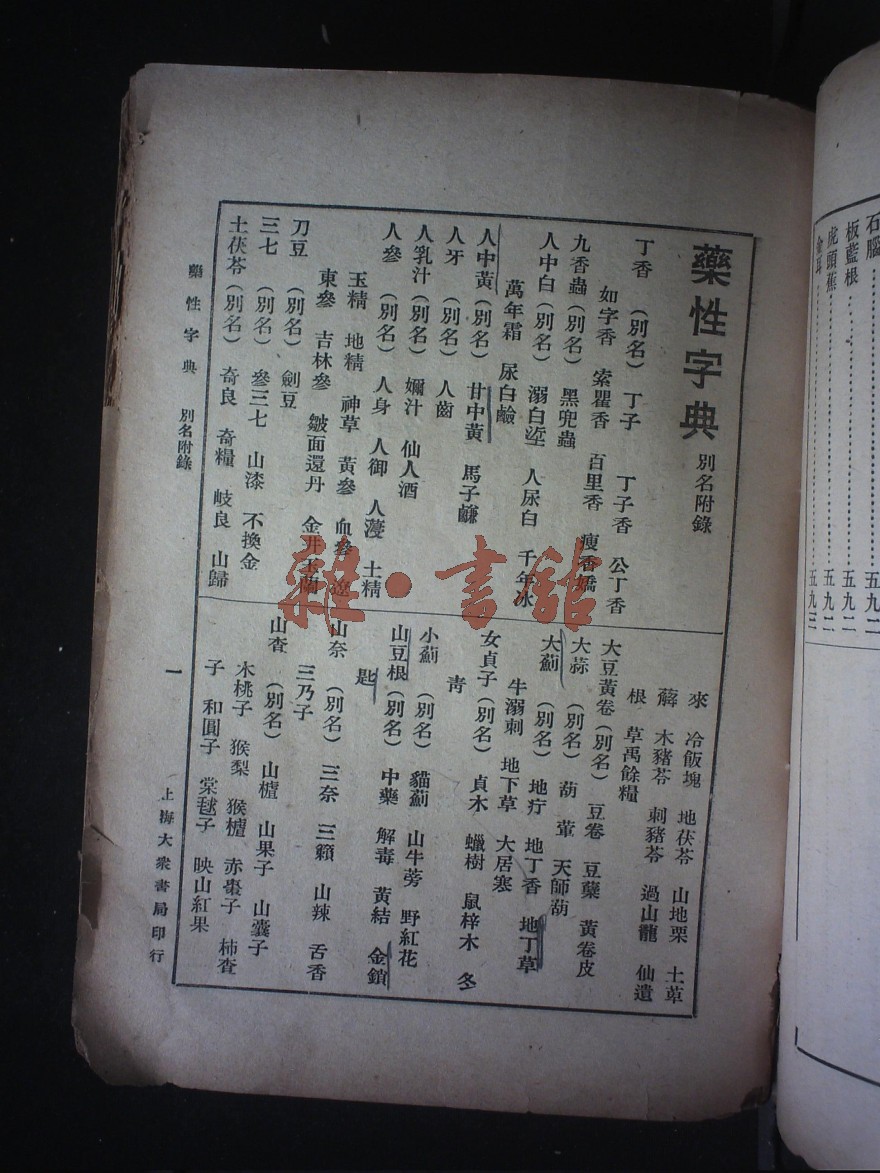 藥性字典 別名附錄
丁香 (別名) 丁子 丁子香 公丁香
如字香 索瞿香 百里香 瘦香嬌
九香蟲 (別名) 黑兜蟲
人中白 (別名) 溺白垽 人尿白 千年冰
萬年霜 尿白鹼
人中黃 (別名) 甘中黃 馬子鹼
人牙 (別名) 人齒
人乳汁 (別名) 嬭汁 仙人酒
人參 (別名) 人身 人御 人薓 土精
玉精 地精 神草 黃參 血參 遼
東參 吉林參 皺面還丹 金井玉蘭
刀豆 (別名) 劍豆
三七 (別名) 參三七 山漆 不換金
土茯苓 (別名) 奇良 奇糧 岐良 山歸
來 冷飯塊 地茯苓 山地栗 土萆
薢 木豬苓 刺豬苓 過山龍 仙遺
根 草禹餘糧
大豆黃卷 (別名) 豆卷 豆蘗 黃卷皮
大蒜 (別名) 葫 葷 天師葫
大薊 (別名) 地疔 地丁香 地丁草
牛溺刺 地下草 大居塞
女貞子 (別名) 貞木 蠟樹 鼠梓木 冬
青
小薊 (別名) 貓薊 山牛蒡 野紅花
山豆根 (別名) 中藥 解毒 黃結 金鎖
匙
山奈 (別名) 三奈 三籟 山辣 舌香
三乃子
山査 (別名) 山樝 山果子 山囊子
木桃子 猴梨 猴樝 赤棗子 柿査
子 和圓子 棠毬子 映山紅果
藥性字典 別名附錄
一
上海大衆書局印行
石腦 五九二
板藍根 五九二
虎頭蕉 五九二
五九三
雜·書館